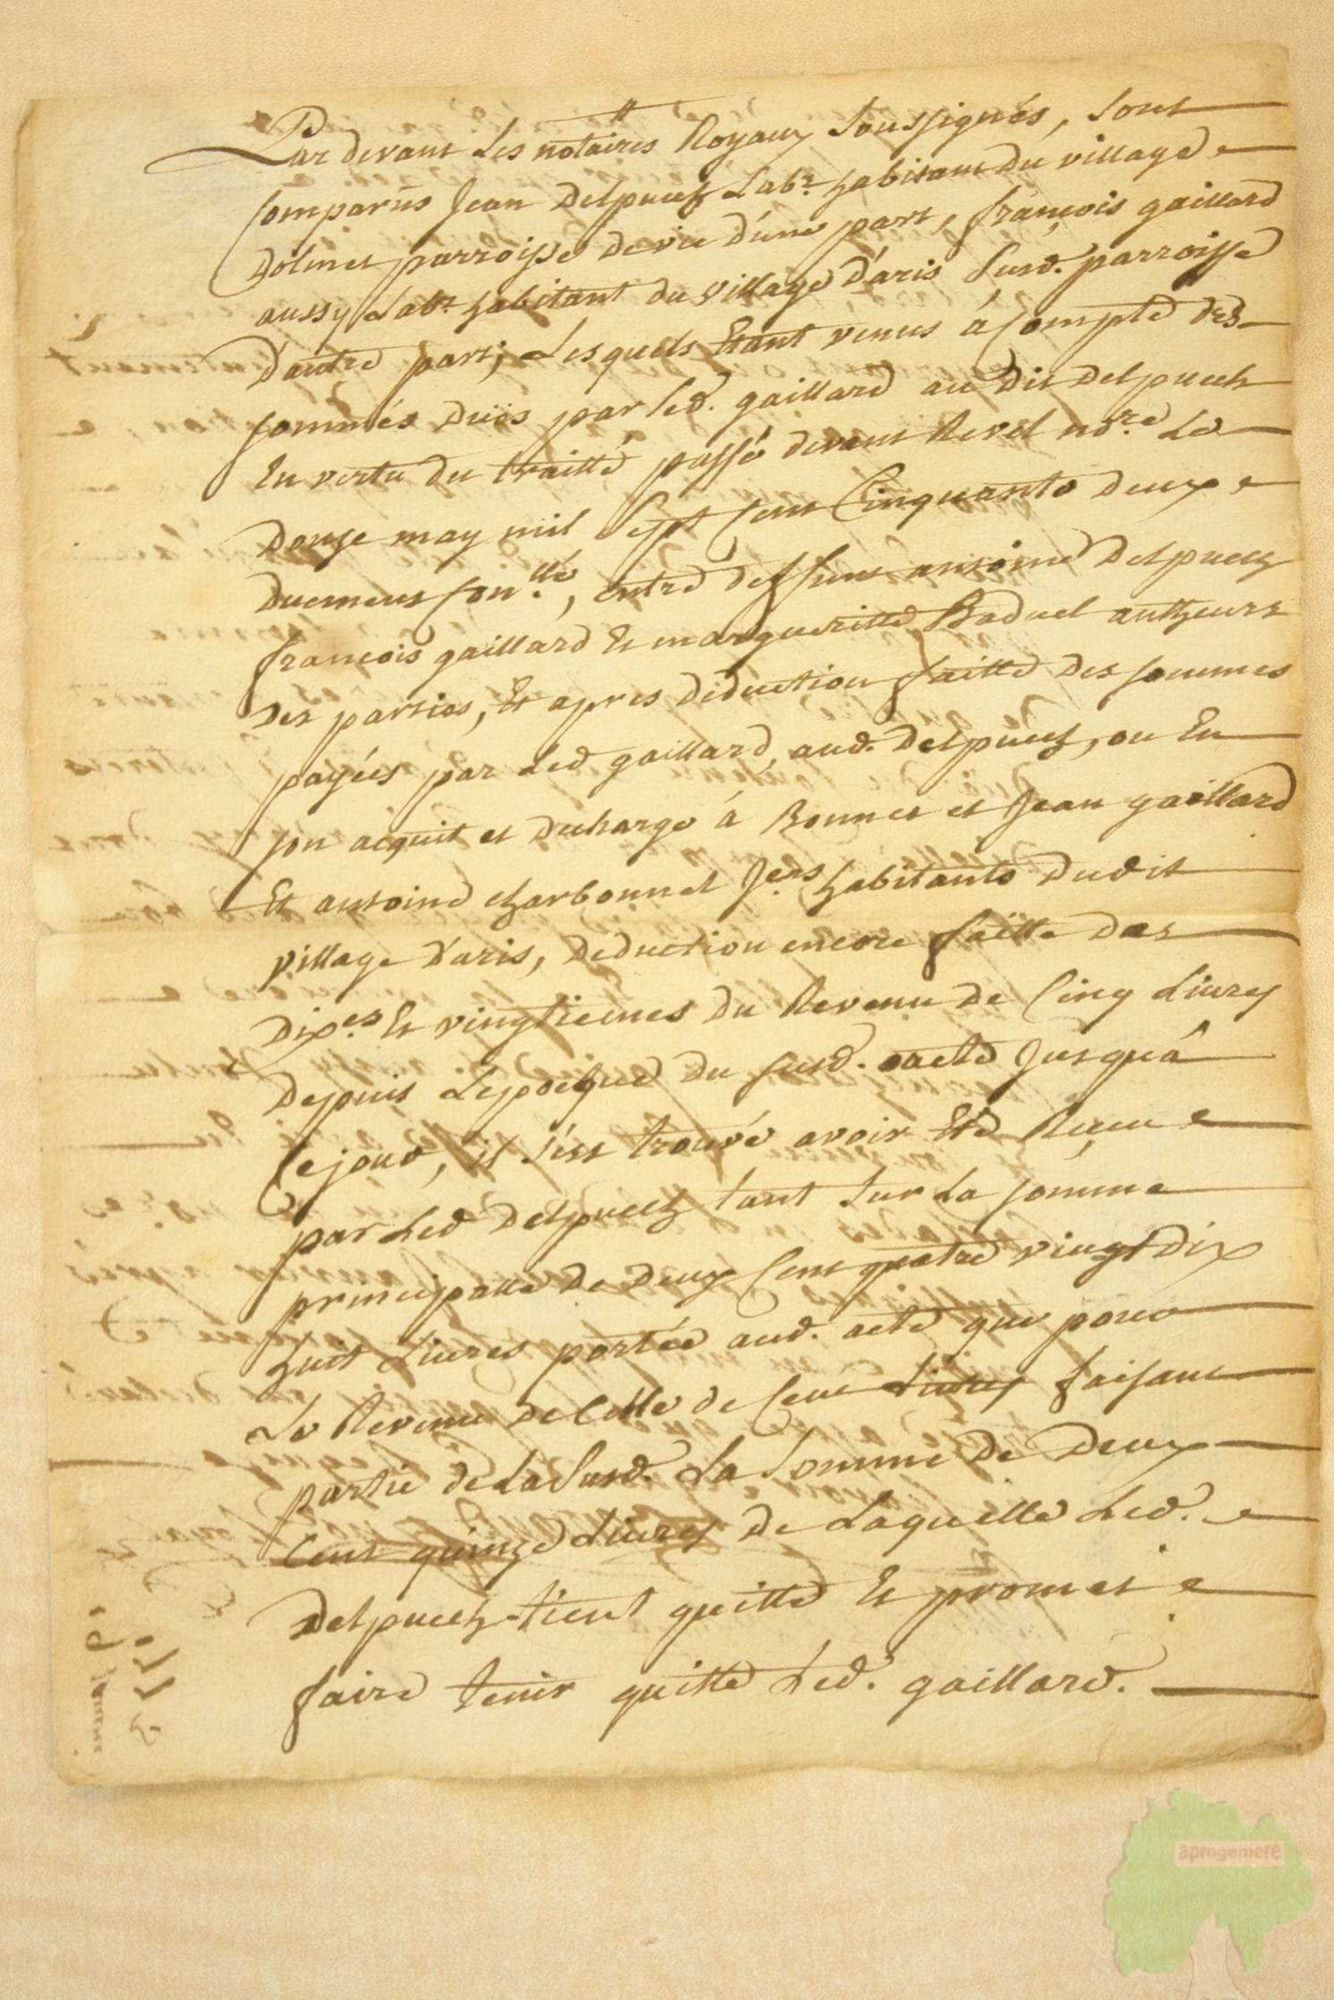 Par devant Les notaires Royaux Soussignés, Sont
Comparûs Jean Delpuech Labr habitant du village
Dolmet parroisse de vic d'une part, françois gaillard
aussy Labr habitant du village d'aris Susd. parroisse
D'autre part; Lesquels Etant venus à Compte des
sommés düos par led. gaillard au dit Delpuech
En vertu du traitté passé devant Revel nore Le
Douze may mil Sept Cent Cinquante deux
Duement Con.llé, entre deffunt antoine Delpuech
françois gaillard Et margueritte Baduel autheurs
Des parties, Et apres déduction faitte des sommes
payées par Led gaillard, aud. Delpuech, ou En
son acquit et decharge à Bonnet et Jean gaillard
Et antoine charbonnel Jers habitants dudit
village d'aris, déduction encore faitte des
Dixes Et vingtiemes du Revenu de Cinq Livres
Depuis Lepoque du susd. acte Jusquâ
Cejour, il s'est trouvé avoir Eté Reçeu
par Led Delpuech tant Sur La somme
principalle de deux Cent quatre vingt Dix
huit Livres portée aud. acte que pour
Le Revenu de Celle de Cent Livres faisant
partie de La Susd. La Somme De Deux
Cent quinze Livres de Laquelle Led.
Delpuech tient quitte Et promet
faire tenir quitte Led. gaillard.
aprogemere